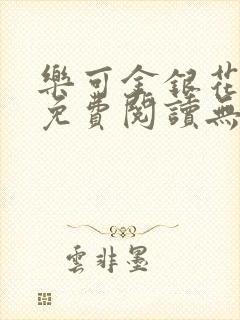 樂可金銀花
免費閱讀無
雲非墨